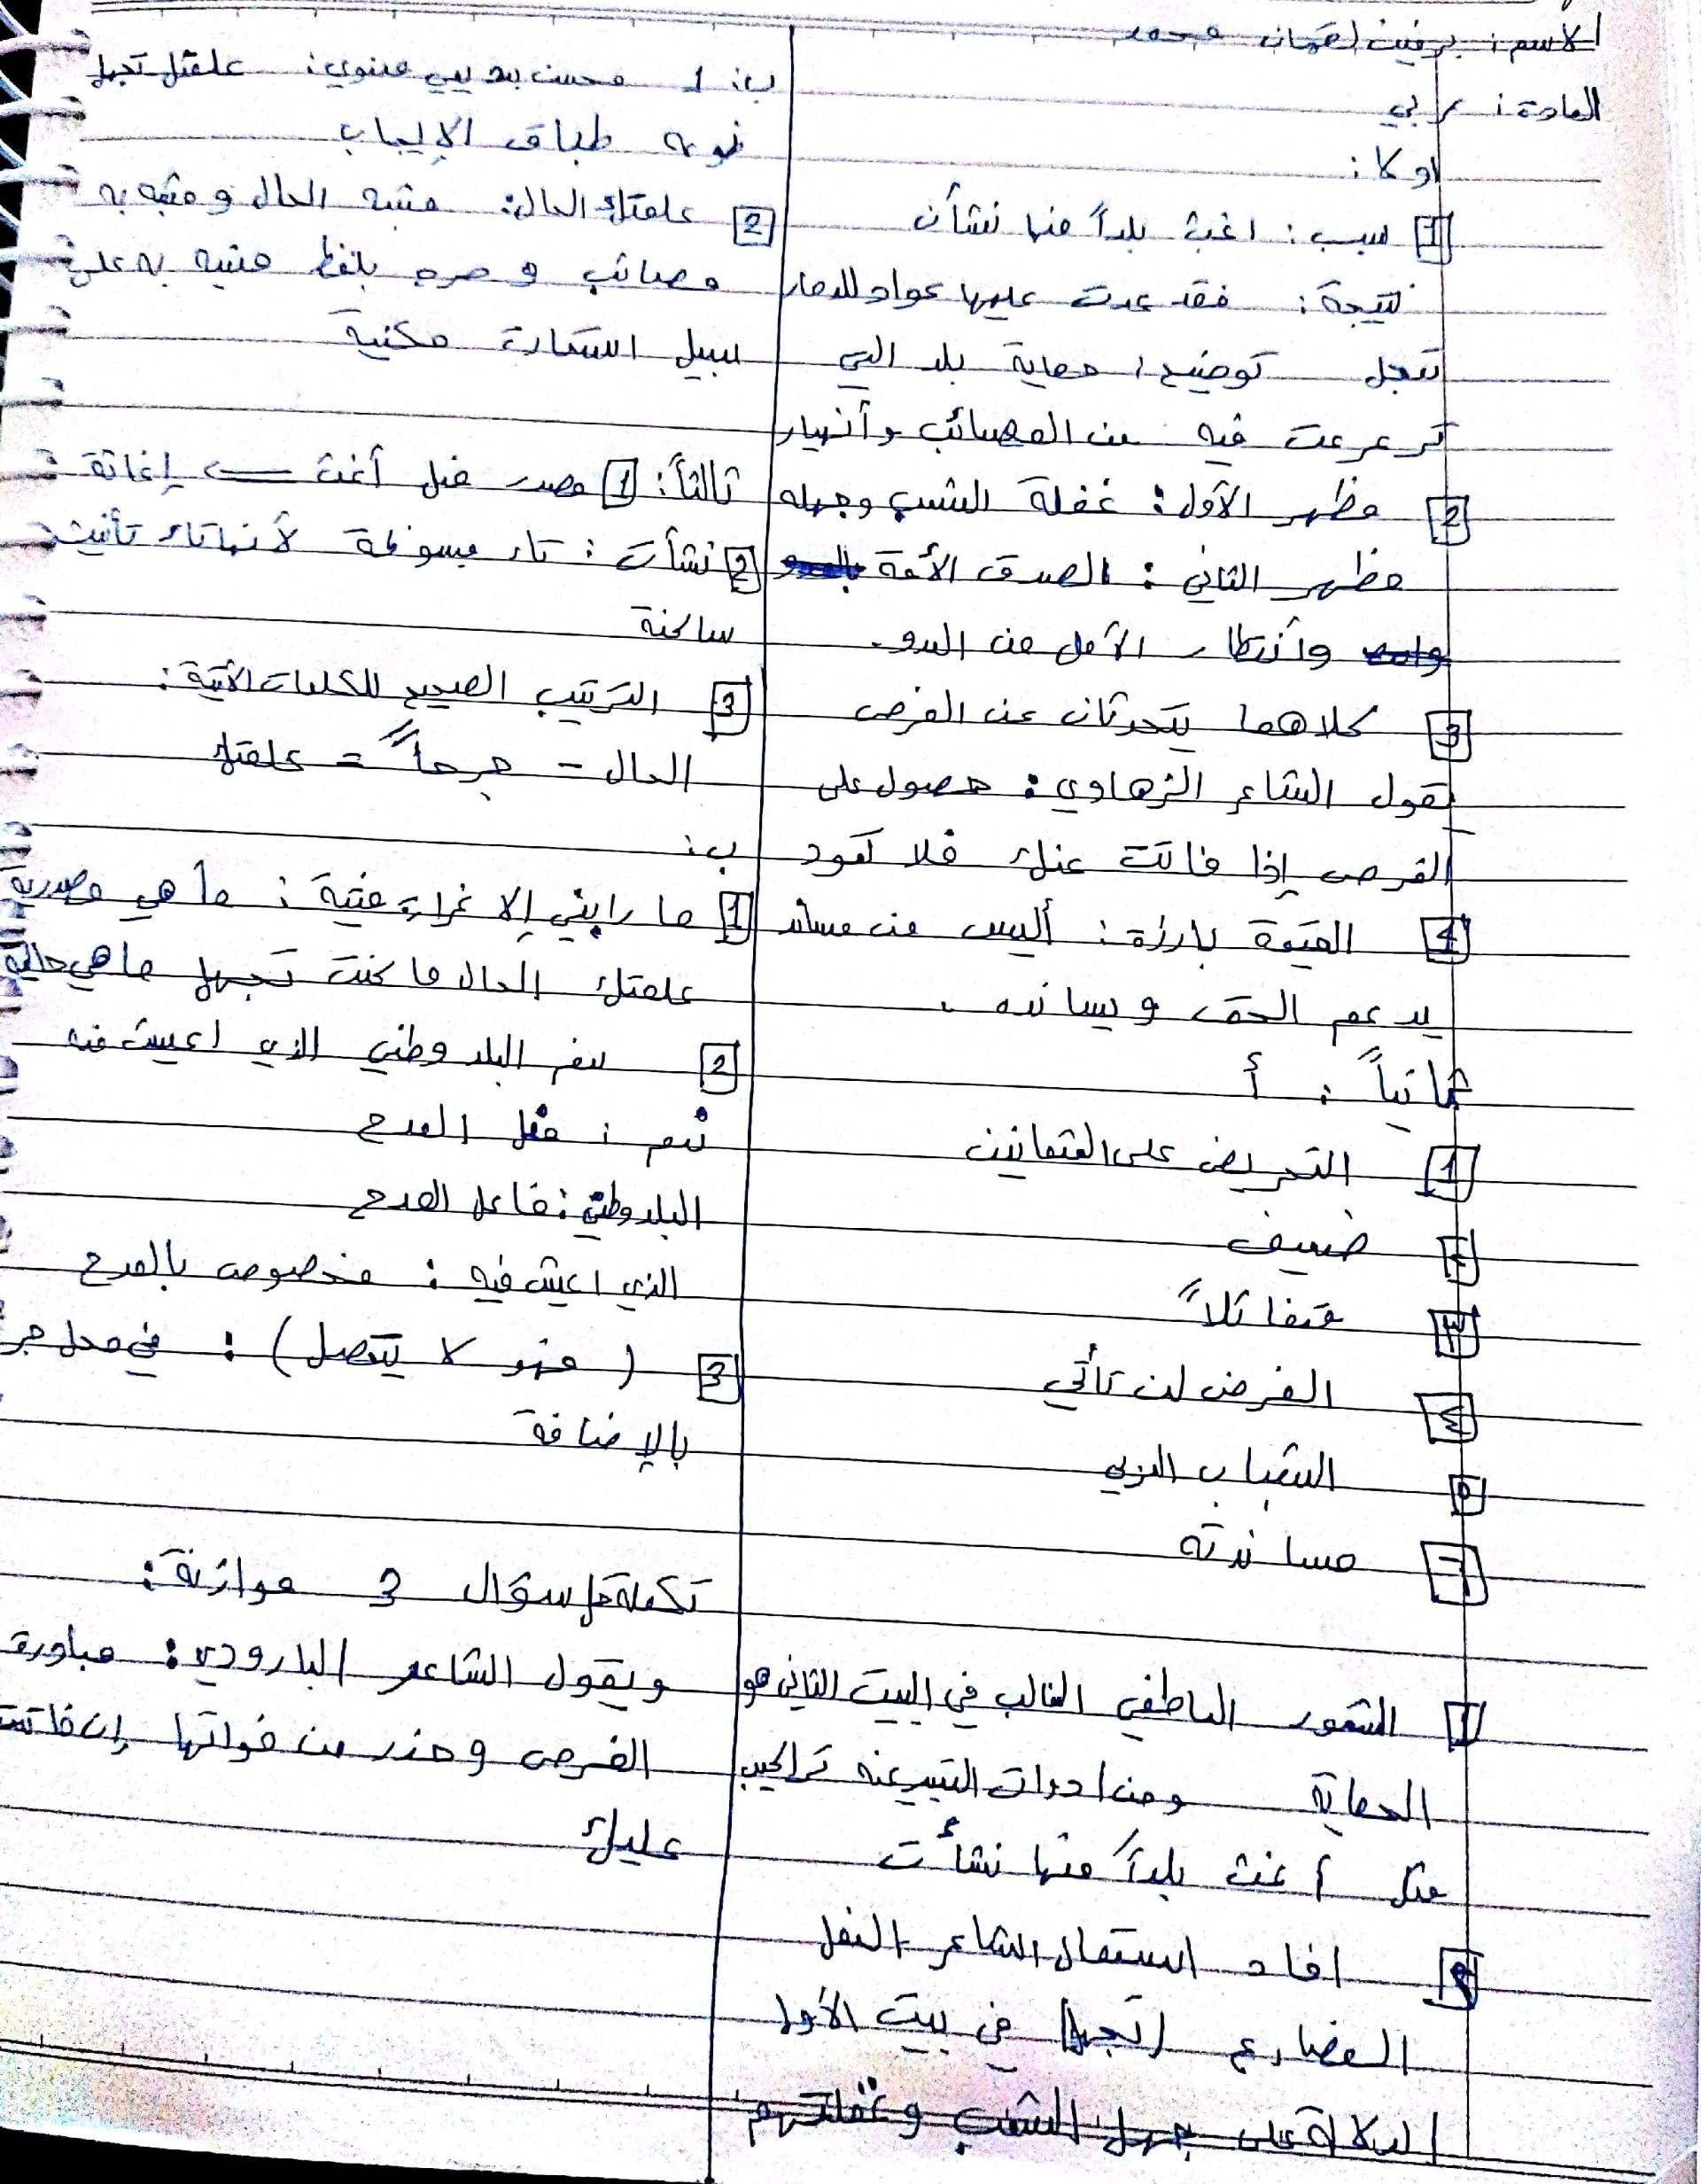 الاسم: برفين لقمان محمد
المادة: عربي
اولا:
1 سبب: اغث بلداً منها نشأت
نتيجة: فقد عدت عليها عواد للدمار
تعجل توضيح: حماية بلد التي
ترعرعت فيه من المصائب وأنهيار
2 مظهر الأول: غفلة الشعب وجهله
مظهر الثاني: الصدق الأمة
وأنتظار الأمل من العدو.
3 كلاهما يتحدثان عن الفرص
يقول الشاعر الزهاوي: حصول على
الفرص إذا فاتت عنك فلا تعود
4 القيمة بارزة: أليس من مساند
يدعم الحق ويسانده.
ثانياً: أ
1 التحريض على العثمانين
2 ضعيف
3 متفائلاً
٤ الفرص لن تأتي
٥ الشباب العربي
٦ مساندته
1 الشعور العاطفي الغالب في البيت الثاني هو
الحماية ومن ادوات التعبير عنه تراكيب
مثل أغث بلداً منها نشأت
افاد استعمال الشاعر الفعل
المضارع (تجهل) في بيت الأول
الدلالة على جهل الشعب وغفلتهم
ب: 1 محسن بديعي معنوي: علمتك تجهل
نوعه طباق الإيجاب
2 علمتك الحال: مشبه الحال و مشبه به
مصائب و صرح بلفظ مشبه به على
سبيل استعارة مكنية
ثالثاً: 1 مصدر فعل أغث ← إغاثة
2 نشأت: تاء مبسوطة لأنها تاء تأنيث
ساكنة
3 الترتيب الصحيح للكلمات الآتية:
الحال - جرحاً - علمتك
ب:
1 ما رابني إلا غرارة فتية: ما هي مصدرية
علمتك الحال ما كنت تجهل ما هي حالية
2 نعم البلد وطني الذي اعيش فيه
نعم: فعل المدح
البلد وطني: فاعل المدح
الذي اعيش فيه: مخصوص بالمدح
3 (فهو لا يتصل): في محل جر
بالإضافة
تكملة حل سؤال 3 موازنة:
ويقول الشاعر البارودي: مبادرة
الفرص وحذر من فواتها إن فاتت
عليك